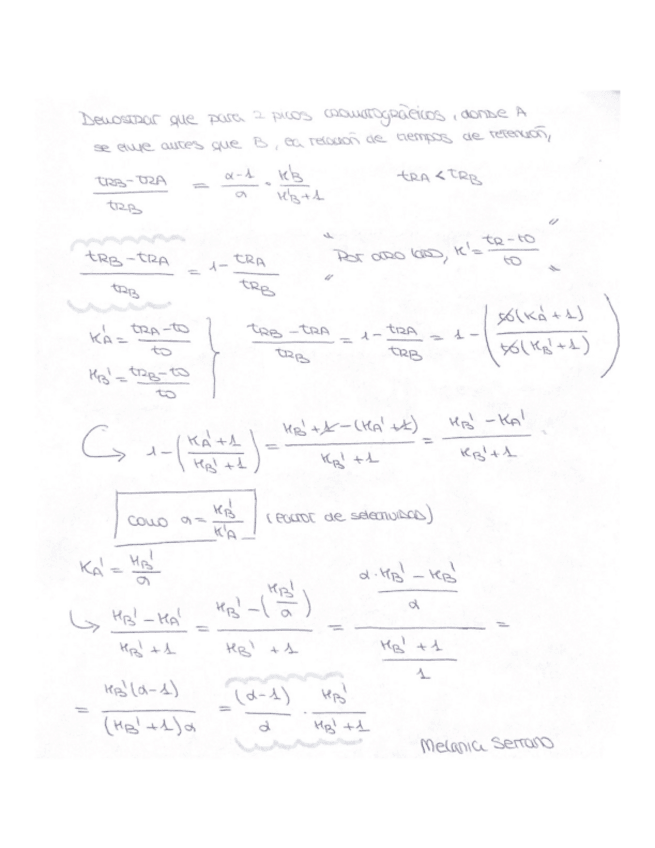 Demostrar que para 2 picos cromatográficos, donde A
se eluye antes que B, la relación de tiempos de retención,
(tRB-tRA)/tRB = (α-1)/α · KB'/(KB'+1)    tRA < tRB
(tRB-tRA)/tRB = 1 - tRA/tRB    " Por otro lado, K' = (tR-t0)/t0 "
KA' = (tRA-t0)/t0
KB' = (tRB-t0)/t0    } (tRB-tRA)/tRB = 1 - tRA/tRB = 1 - (t0(KA'+1)/t0(KB'+1))
1 - ((KA'+1)/(KB'+1)) = (KB'+1-(KA'+1))/(KB'+1) = (KB'-KA')/(KB'+1)
como α = KB'/K'A (factor de selectividad)
KA' = KB'/α
(KB'-KA')/(KB'+1) = (KB'-(KB'/α))/(KB'+1) = ((α·KB'-KB')/α)/((KB'+1)/1) =
= KB'(α-1)/((KB'+1)α) = (α-1)/α · KB'/(KB'+1)
Melania Serrano